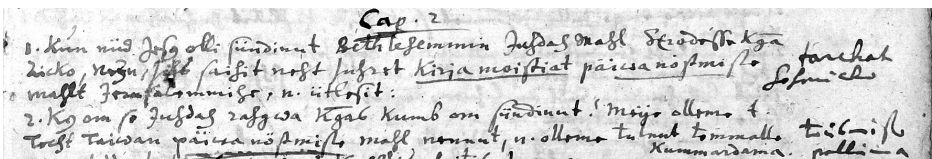 Cap. 2
1. Kun nüd Jesq olli sündinut Bethlehemmin Juhdah Mahl Herodesse Kga
Aicko, saihit neht suhret Kirja moistiat päiwa nöstmisse
mahlt Jerusalemmihe, n. ütlesit:
2. Kq om se Juhdah rahgwa Kgas Kumb om sündinut? Meije olleme t
Techt Taiwan päiwa nöstmisse mahl nennut, n. olleme tulnut temmalle
Kummardama.